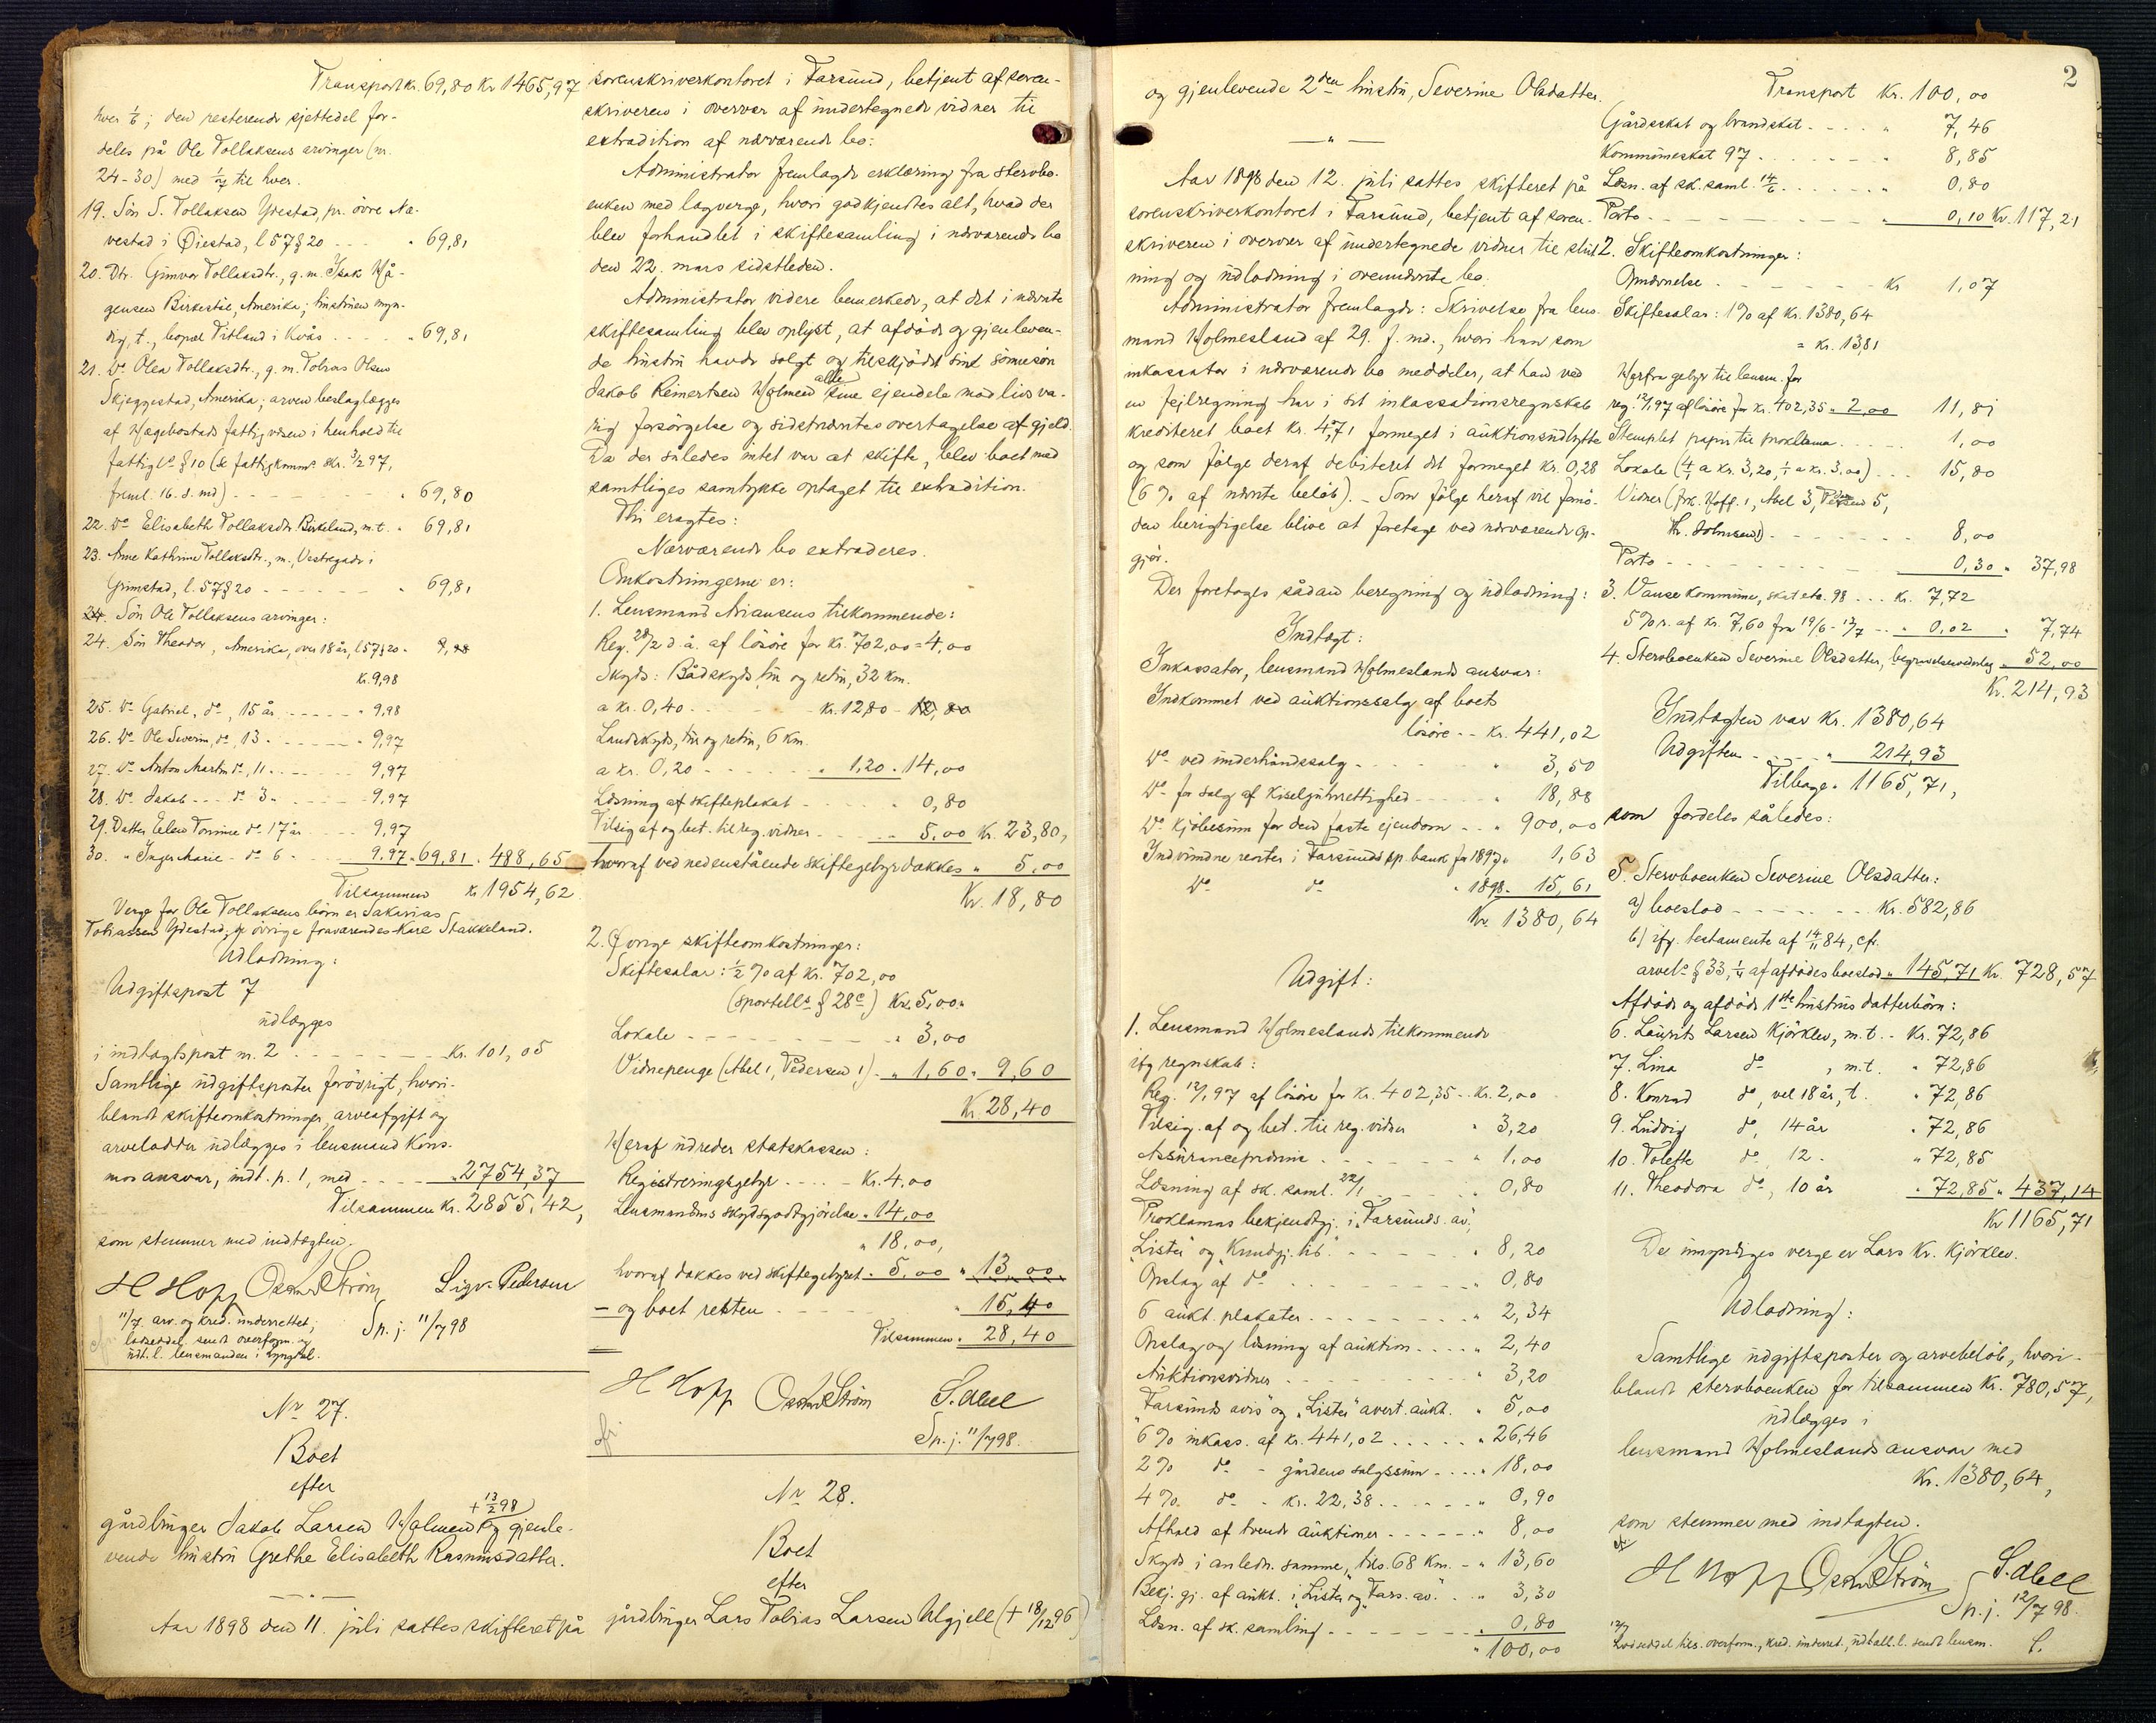 Transport kr. 69,80 kr 1465,97
hver 1/6; den resterende sjettedel for-
deles på Ole Tollaksens arvinger (nr.
24-30) med 1/7 til hver.
19. Søn S. Tollaksen Ydestad, pr. övre Næ-
vestad i Øiestad, l 57 § 20 - - - " 69,81
20. Dtr. Gunvor Tollaksdtr., g.m. Isak Hå-
gensen Birkestøl, Amerika; hustruen myn-
dig, t., bopæl Titland i Kvås - - - - " 69,81
21. Do Olea Tollaksdtr., g.m. Tobias Olsen
Skjeggestad, Amerika; arven beslaglægges
af Hægebostads fattigvæsen i henhold til
fattigl. § 10 (se fattigkomms skr. 3/2 97,
freml. 16. s. md) - - - - - - " 69,80
22. Do Elisabeth Tollaksdtr. Birkeland, m.t. " 69,81
23. Anne Kathrine Tollaksdtr., m., Vestregade i
Grimstad, l. 57 § 20 - - - - - - " 69,81
24. Søn Ole Tollaksens arvinger:
24. Søn Theodor, Amerika, over 18 år, l 57 § 20 " 9,98
kr. 9,98
25. Do Gabriel, do, 15 år - - - - - " 9,98
26. Do Ole Severin, do, 13 " - - - - " 9,97
27. Do Anton Martin do, 11 " - - - - 9,97
28. Do Jakob - - - do 3 " - - - - - 9,97
29. Datter Elen Tomine do 17 år - - - 9,97
30. " Inger Marie - do 6 " - - - 9.97 " 69,81 " 488,65
Tilsammen kr 1954,62
Verge for Ole Tollaksens børn er Sakarias
Tobiassen Ydestad; for øvrige fraværendes Karl Stakkeland.
Udlodning:
Udgiftspost 7
udlægges
i indtægtspost nr. 2 - - - - - - - kr. 101,05
Samtlige udgiftsposter forøvrigt, hvori-
blandt skifteomkostninger, arveafgift og
arvelodder udlægges i lensmand Kons-
mos ansvar, indt. p. 1, med - - - - " 2754,37
Tilsammen kr. 2855,42,
som stemmer med indtægten.
H Hopp Oskar Strøm Sigv. Pedersen
11/7. arv. og kred. underrettet;
lodseddel sendt overform. og
udt. l. lensmanden i Lyngdal.
Sp. j. 11/7 98
Nr 27.
Boet
efter
gårdbruger Jakob Larsen Holmen († 13/2 98) og gjenle-
vende hustru Grethe Elisabeth Rasmusdatter.
Aar 1898 den 11. juli sattes skifteret på
sorenskriverkontoret i Farsund, betjent af soren-
skriveren i overvær af undertegnede vidner til
extradition af nærværende bo:
Administrator fremlagde erklæring fra stervbo-
enken med lagverge, hvori godkjendtes alt, hvad der
blev forhandlet i skiftesamling i nærværende bo
den 22. mars sidstleden.
Administrator videre bemerkede, at det i nævnte
skiftesamling blev oplyst, at afdøde og gjenleven-
de hustru havde solgt og tilskjødet sin sønnesøn
Jakob Reinertsen Holmen alle sine ejendele mod livsva-
rig forsørgelse og sidstnævntes overtagelse af gjeld.
Da der således intet var at skifte, blev boet med
samtliges samtykke optaget til extradition.
Thi eragtes:
Nærværende bo extraderes.
Omkostningerne er:
1. Lensmand Ariansens tilkommende:
Reg. 28/2 d.å. af løsøre for kr. 702,00 = 4,00
Skyds: Bådskyds, tur og retur, 32 km.
a kr. 0,40 - - - - - kr. 12,80
Landskyds, tur og retur, 6 km.
a kr. 0,20 - - - - - " 1,20 " 14,00
Læsning af skifteplakat - - - - - " 0,80
Tilsig. af og bet. til reg. vidner - - - - 5,00 kr. 23,80,
hvoraf ved nedenstående skiftegebyr dækkes " 5,00
Kr. 18,80
2. Øvrige skifteomkostninger:
Skiftesalar: 1/2 % af kr. 702,00
(sportell. § 28 c) kr. 5,00.
Lokale - - - - - - - - - " 3,00
Vidnepenge (Abel 1, Pedersen 1) - " 1,60 " 9,60
Kr. 28,40
Heraf udreder statskassen:
Registreringsgebyr - - - - kr. 4,00
Lensmandens skydsgodtgjørelse " 14,00
" 18,00,
hvoraf dækkes ved skiftegebyret " 5,00 " 13,00
- og boet resten - - - - - - " 15,40
Tilsammen " 28,40
H Hopp Oskar Strøm S. Abel
Sp. j. 11/7 98.
Nr 28.
Boet
efter
gårdbruger Lars Tobias Larsen Ulgjell († 18/12 96)
2
og gjenlevende 2den hustru, Severine Olsdatter.
Aar 1898 den 12. juli sattes skifteret på
sorenskriverkontoret i Farsund, betjent af soren-
skriveren i overvær af undertegnede vidner til slut-
ning og udlodning i ovennævnte bo.
Administrator fremlagde: Skrivelse fra lens-
mand Holmesland af 29. f. md., hvori han som
inkassator i nærværende bo meddeler, at han ved
en fejlregning har i sit inkassationsregnskab
krediteret boet kr. 4,71 formeget i auktionsudbytte
og som følge deraf debiteret det formeget kr. 0,28
(6 % af nævnte beløb). - Som følge heraf vil fornø-
den berigtigelse blive at foretage ved nærværende op-
gjør.
Der foretoges sådan beregning og udlodning:
Indtægt:
Inkassator, lensmand Holmeslands ansvar:
Indkommet ved auktionssalg af boets
løsøre - - kr. 441,02
Do ved underhåndssalg - - - - - " 3,50
Do for salg af Kiselguhrrettighed - - - - " 18,88
Do kjøbesum for den faste ejendom - - " 900,00
Indvundne renter i Farsunds sp. bank for 1897 " 1,63
Do do " 1898 " 15,61
Kr. 1380,64
Udgift:
1. Lensmand Holmeslands tilkommende
ifg regnskab:
Reg. 12/1 97 af løsøre for kr. 402,35 - kr. 2,00
Tilsig. af og bet. til reg. vidner " 3,20
Assurancepræmie - - - - - - " 1,00
Læsning af sk. saml. 22/1 - - - - " 0,80
Proklamas bekjendtgj. i "Farsunds av.",
"Lister" og "Kundgj. tid." - - - - - " 8,20
Opslag af do - - - - - - - - " 0,80
6 aukt. plakater - - - - - - - - " 2,34
Opslag og læsning af auktion - - - - " 2,40
Auktionsvidner - - - - - - - - " 3,20
"Farsunds avis" og "Lister" avert. aukt. " 5,00
6 % inkass. af kr. 441,02 - - - - - " 26,46
2 % do - gårdens salgssum - - - - " 18,00
4 % do " kr. 22,38 - - - - - - " 0,90
Afhold af tvende auktioner - - - - - - " 8,00
Skyds i anledn. samme, tils. 68 Km. - - " 13,60
Bekj. gj. af aukt. i "Lister" og "Fars. av." - " 3,30
Læsn. af sk. samling - - - - - - " 0,80
" 100,00
Transport kr. 100,00
Gårdsskat og brandskat - - - - " 7,46
Kommuneskat 97 - - - - - - " 8,85
Læsn. af sk. saml. 14/6 - - - - - " 0,80
Porto - - - - - - - - - " 0,10 Kr. 117,21
2. Skifteomkostninger:
Opnævnelse - - - - - - - kr 1,07
Skiftesalar: 1 % af kr. 1380,64
= kr. 13,81
Herfra gebyr til lensm. for
reg. 12/1 97 af løsøre for kr. 402,35 " 2,00 11,81
Stemplet papir til proklama - - - - 1,00
Lokale (4/1 a kr. 3,20, 1/1 a kr. 3.00) - - - 15,80
Vidner (frk. Hoff. 1, Abel 3, Pedersen 5,
Th. Salvesen 1) - - - - - - - 8,00
Porto - - - - - - - - - 0,30 " 37,98
3. Vanse kommune, skat etc. 98 - - - kr. 7,72
5 % r. af kr. 7,60 fra 19/6 - 12/7 - - " 0,02 " 7,74
4. Stervboenken Severine Olsdatter, begravelsesudlæg " 52,00
Kr. 214,93
Indtægten var kr. 1380,64
Udgiften - - - - " 214,93
Tilbage " 1165,71,
som fordeles således:
5. Stervboenken Severine Olsdatter:
a) boeslod - - - - - - - kr. 582,86
b) ifg. testamente af 14/11 84, cfr.
arvel. § 33, 1/4 af afdødes boeslod " 145,71 Kr. 728,57
Afdøde og afdøde 1ste hustrus datterbørn:
6. Laurits Larsen Kjørklev, m.t. - kr. 72,86
7. Lina do , m.t. " 72,86
8. Konrad do, vel 18 år, t. " 72,86
9. Ludvig do, 14 år " 72,86
10. Tolette do, 12 " " 72,85
11. Theodora do, 10 år " 72,85 " 437,14
Kr 1165,71
De umyndiges verge er Lars Kr. Kjørklev.
Udlodning:
Samtlige udgiftsposter og arvebeløb, hvori-
blandt stervboenken for tilsammen kr. 780,57,
udlægges i
lensmand Holmeslands ansvar med
Kr. 1380,64,
som stemmer med indtægten.
H Hopp Oskar Strøm S. Abel
Sp. j. 12/7 98.
12/7
Lodseddel tils. overform., kred. underret., udbtall. l. sendt lensm.